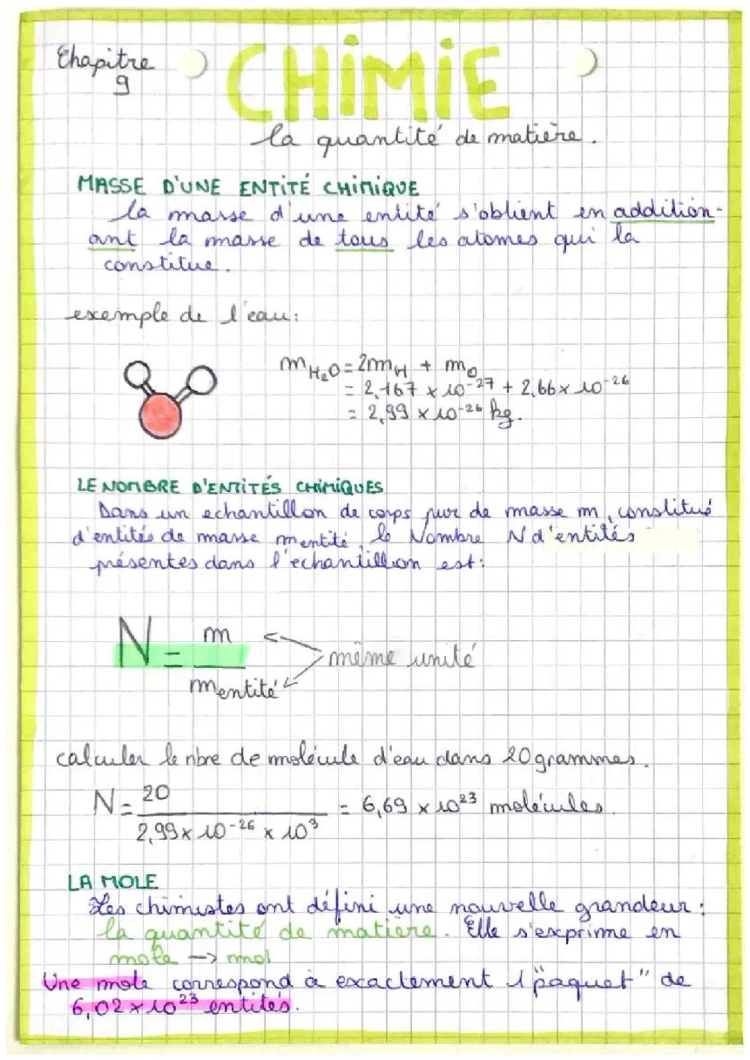 Chapitre
9
CHIMIE
la quantité de matière.
MASSE D'UNE ENTITÉ CHIMIQUE
la masse d'une entité s'obtient en addition-
ant la masse de tous les atomes qui la
constitue.
exemple de l'eau:
mH₂O = 2mH + mO
= 2,167 × 10⁻²⁷ + 2,66 × 10⁻²⁶
= 2,99 × 10⁻²⁶ kg.
LE NOMBRE D'ENTITÉS CHIMIQUES
Dans un echantillon de corps pur de masse m, constitué
d'entités de masse mentité, le Nombre N d'entités
présentes dans l'echantillion est:
N = m / mentité
même unité
calculer le nbre de molécule d'eau dans 20 grammes.
N = 20 / 2,99 × 10⁻²⁶ × 10³ = 6,69 × 10²³ molécules.
LA MOLE
Les chimistes ont défini une nouvelle grandeur:
la quantité de matière. Elle s'exprime en
mole -> mol
Une mole correspond à exactement 1 "paquet" de
6,02 × 10²³ entités.